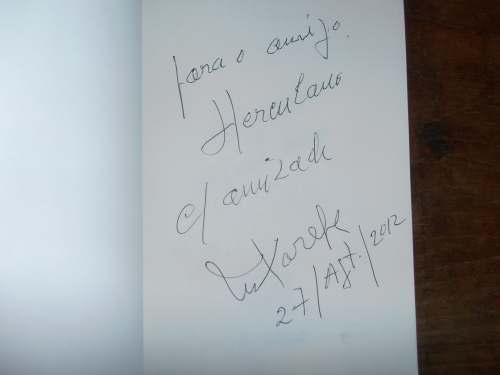 para o amigo.
Herculano
c/ amizade
27/Agt./2012